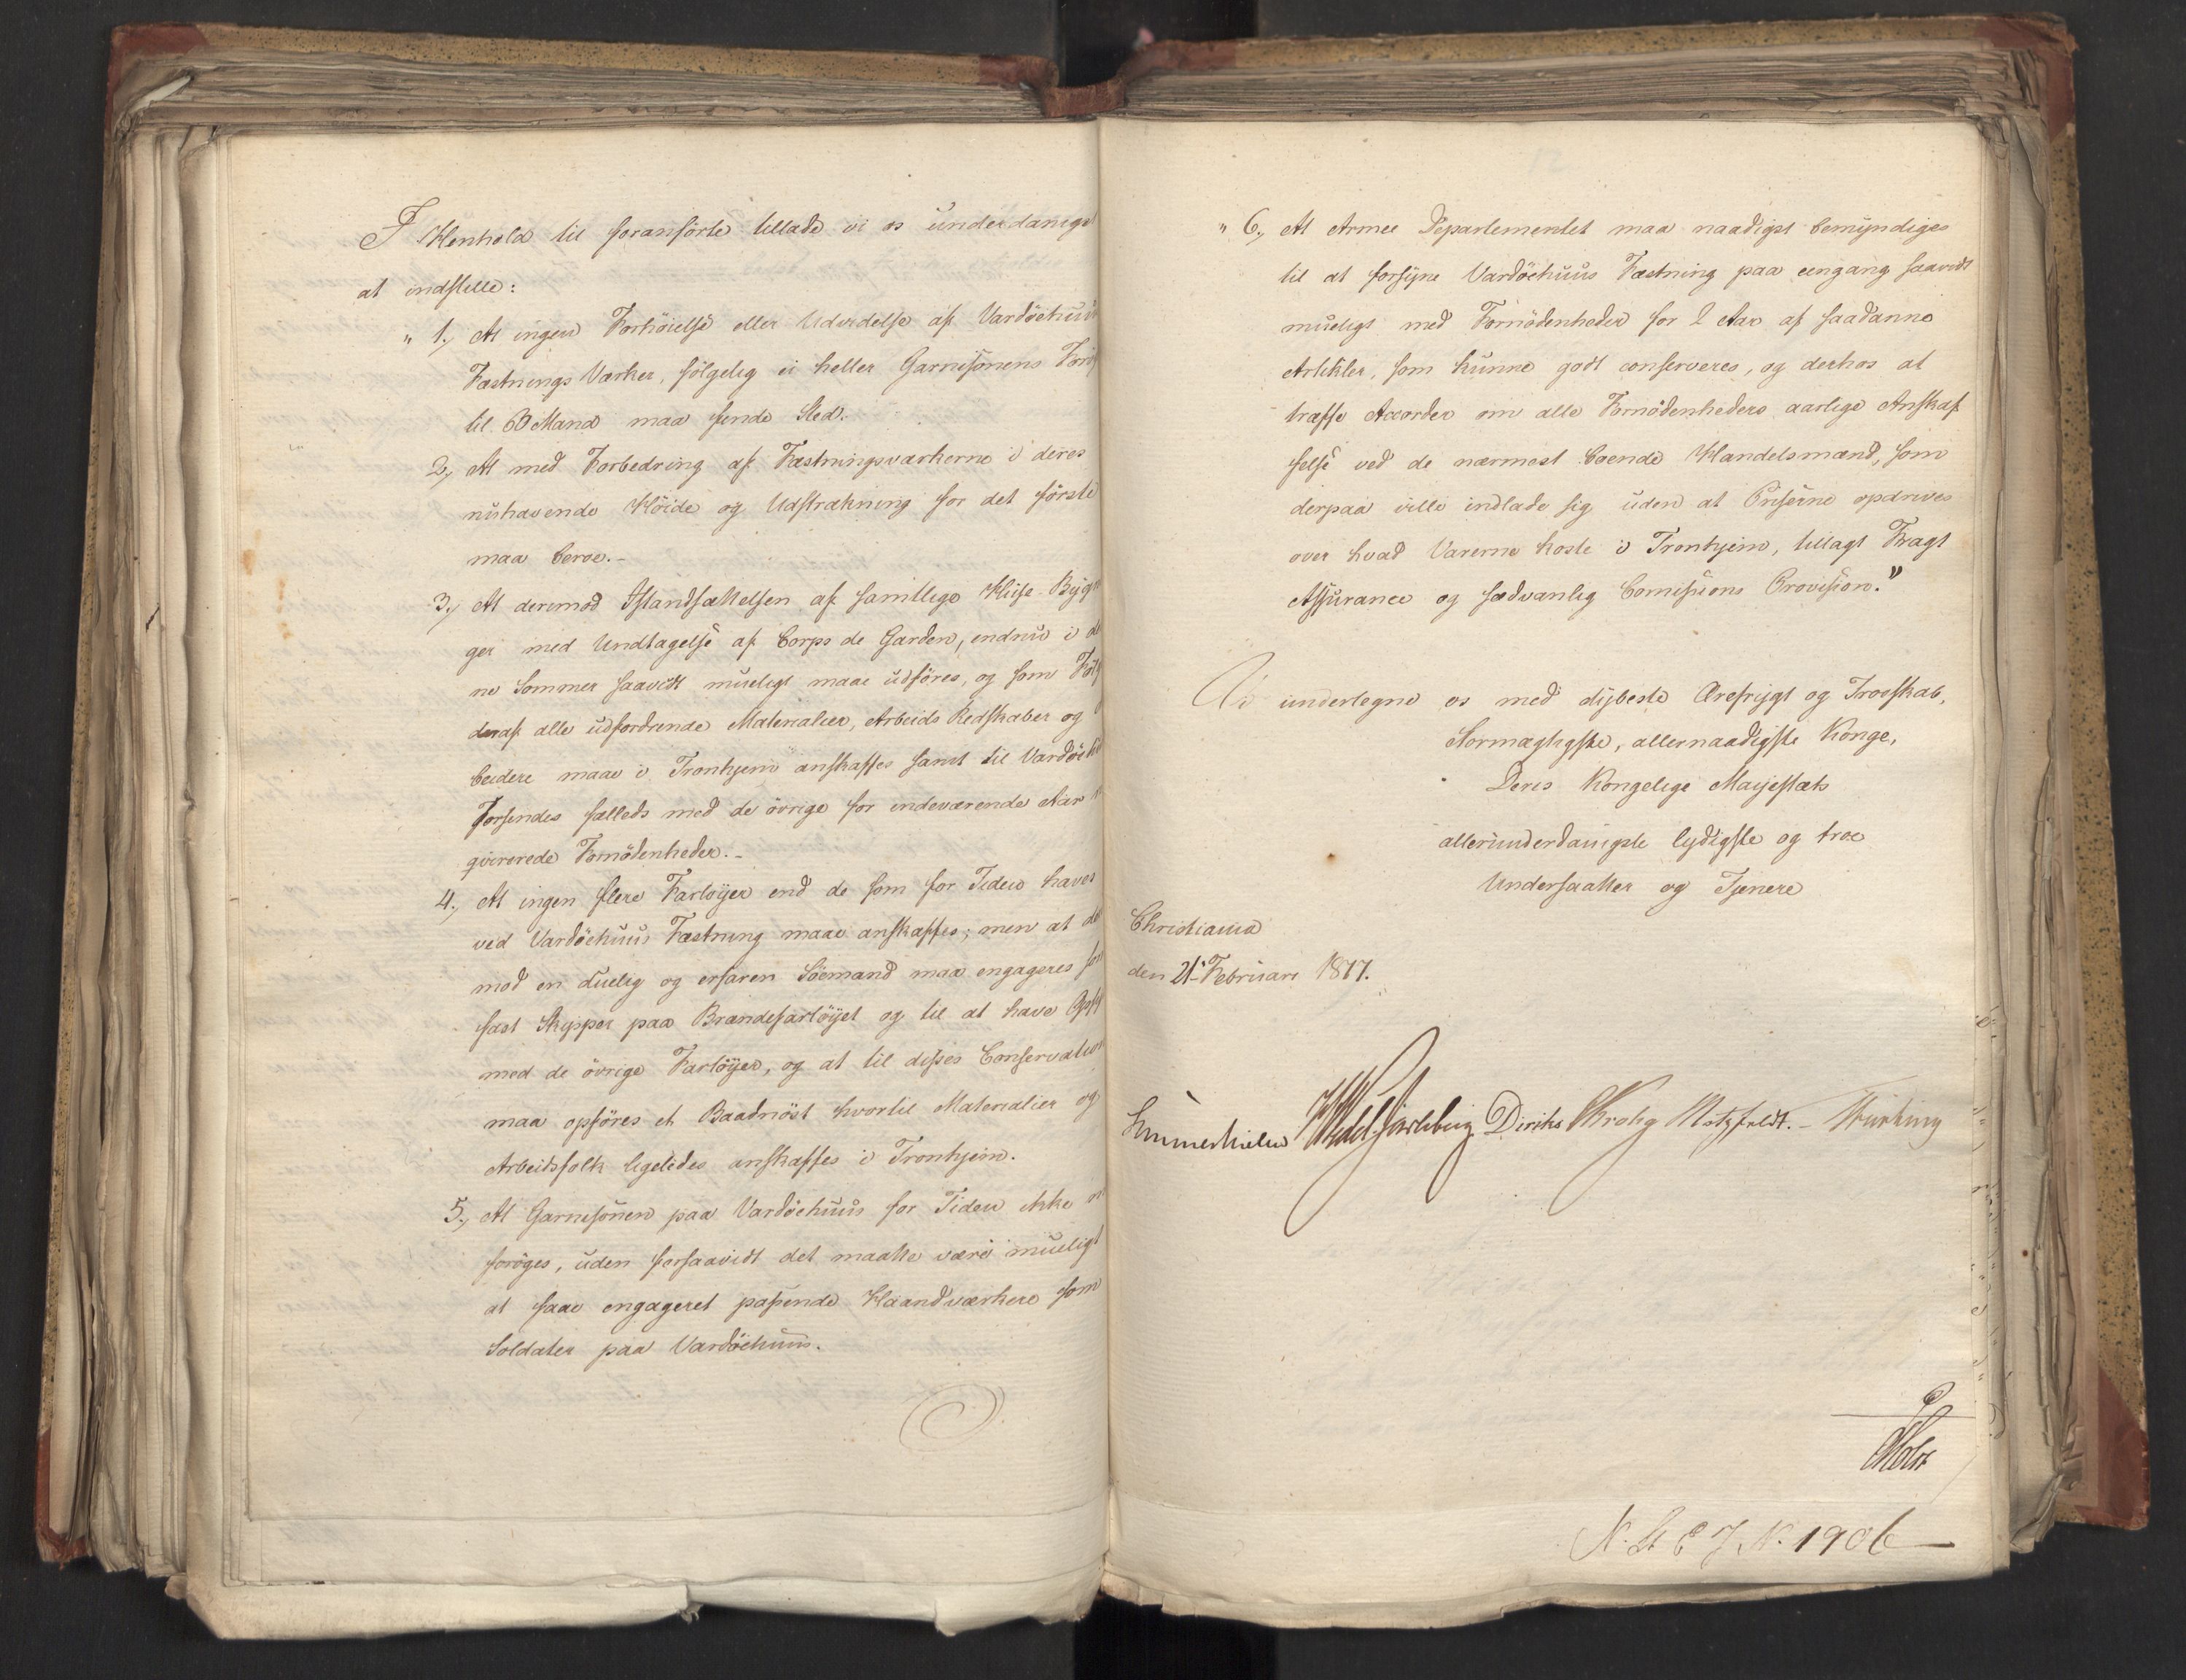 I Henhold til foranförte tillade vi os underdanigst
at indstille:
" 1, At ingen Forhöielse eller Udvidelse af Vardöehuus
Fæstnings Værker, fölgelig ei heller Garnisonens
til 60 Mand maa finde Sted.
2, At med Forbedring af Fæstningsværkerne i deres
nuhavende Höide og Udstrækning for det förste
maa beroe.-
3, At derimod Istandsættelsen af samtlige Huse-Byg
ger med Undtagelse af Corps de Garden, endnu i de
ne Sommer saavidt mueligt maae udföres, og som Fölg
deraf alle udfordrende Materialier, Arbeids Redskaber og
beidere maae i Tronhjem anskaffes samt til Vardöe
forsendes fælleds med de övrige for indeværende Aar
qvirerede Fornödenheder.-
4, At ingen flere Fartöyer end de som for Tiden haves
ved Vardöehuus Fæstning maae anskaffes; men at de
mod en duelig og erfaren Söemand maa engageres som
fast Skipper paa Brændefartöyet og til at have Ops
med de övrige Fartöyer, og at til disses Conservation
maa opföres et Baadnöst hvortil Materialier og
Arbeidsfolk ligeledes anskaffes i Tronhjem.
5, At Garnisonen paa Vardöehuus for Tiden ikke
foröges, uden forsaavidt det maatte være mueligt
at faae engageret passende Haandværkere som
Soldater paa Vardöehuus.
" 6, At Armee Departementet maa naadigst bemyndiges
til at forsyne Vardöehuus Fæstning paa eengang saavidt
mueligt med Fornödenheder for 2 Aar af saadanne
Artikler, som kunne godt conserveres, og derhos at
træffe Accorder om alle Fornödenheders aarlige Anskaf
felse ved de nærmest boende Handelsmænd, som
derpaa ville indlade sig uden at Priserne opdrives
over hvad Varerne koste i Tronhjem, tillagt Fragt
Assurance og sædvanlig Comissions Provision."
Vi undertegne os med dybeste Ærefrygt og Troeskab,
Stormægtigste, allernaadigste Konge,
Deres Kongelige Majestæts
allerunderdanigste lydigste og troe
Undersaatter og Tjenere
Christiania
den 21 Februari 1817.
Sommerhielm Wedel Jarlsberg Diriks Krohg Motzfeldt.-
Holst
N. St E J. N. 1906